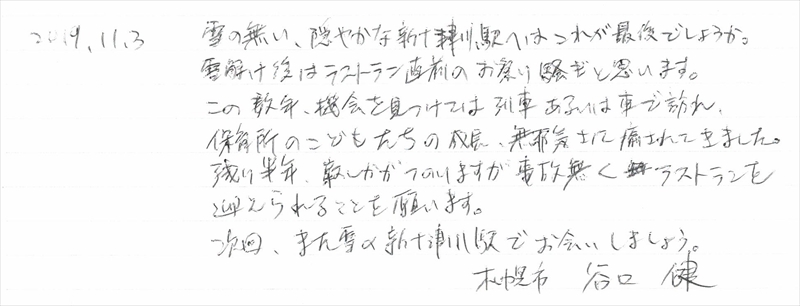 2019.11.3
雪の無い、穏やかな新十津川駅へはこれが最後でしょうか。
雪解け後はラストラン直前のお祭り騒ぎだと思います。
この数年、機会を見つけては列車あるいは車で訪れ、
保育所のこどもたちの成長、無邪気さに癒されてきました。
残り半年、寂しさがつのりますが事故無くラストランを
迎えられることを願います。
次回、また雪の新十津川駅でお会いしましょう。
札幌市 谷口 健